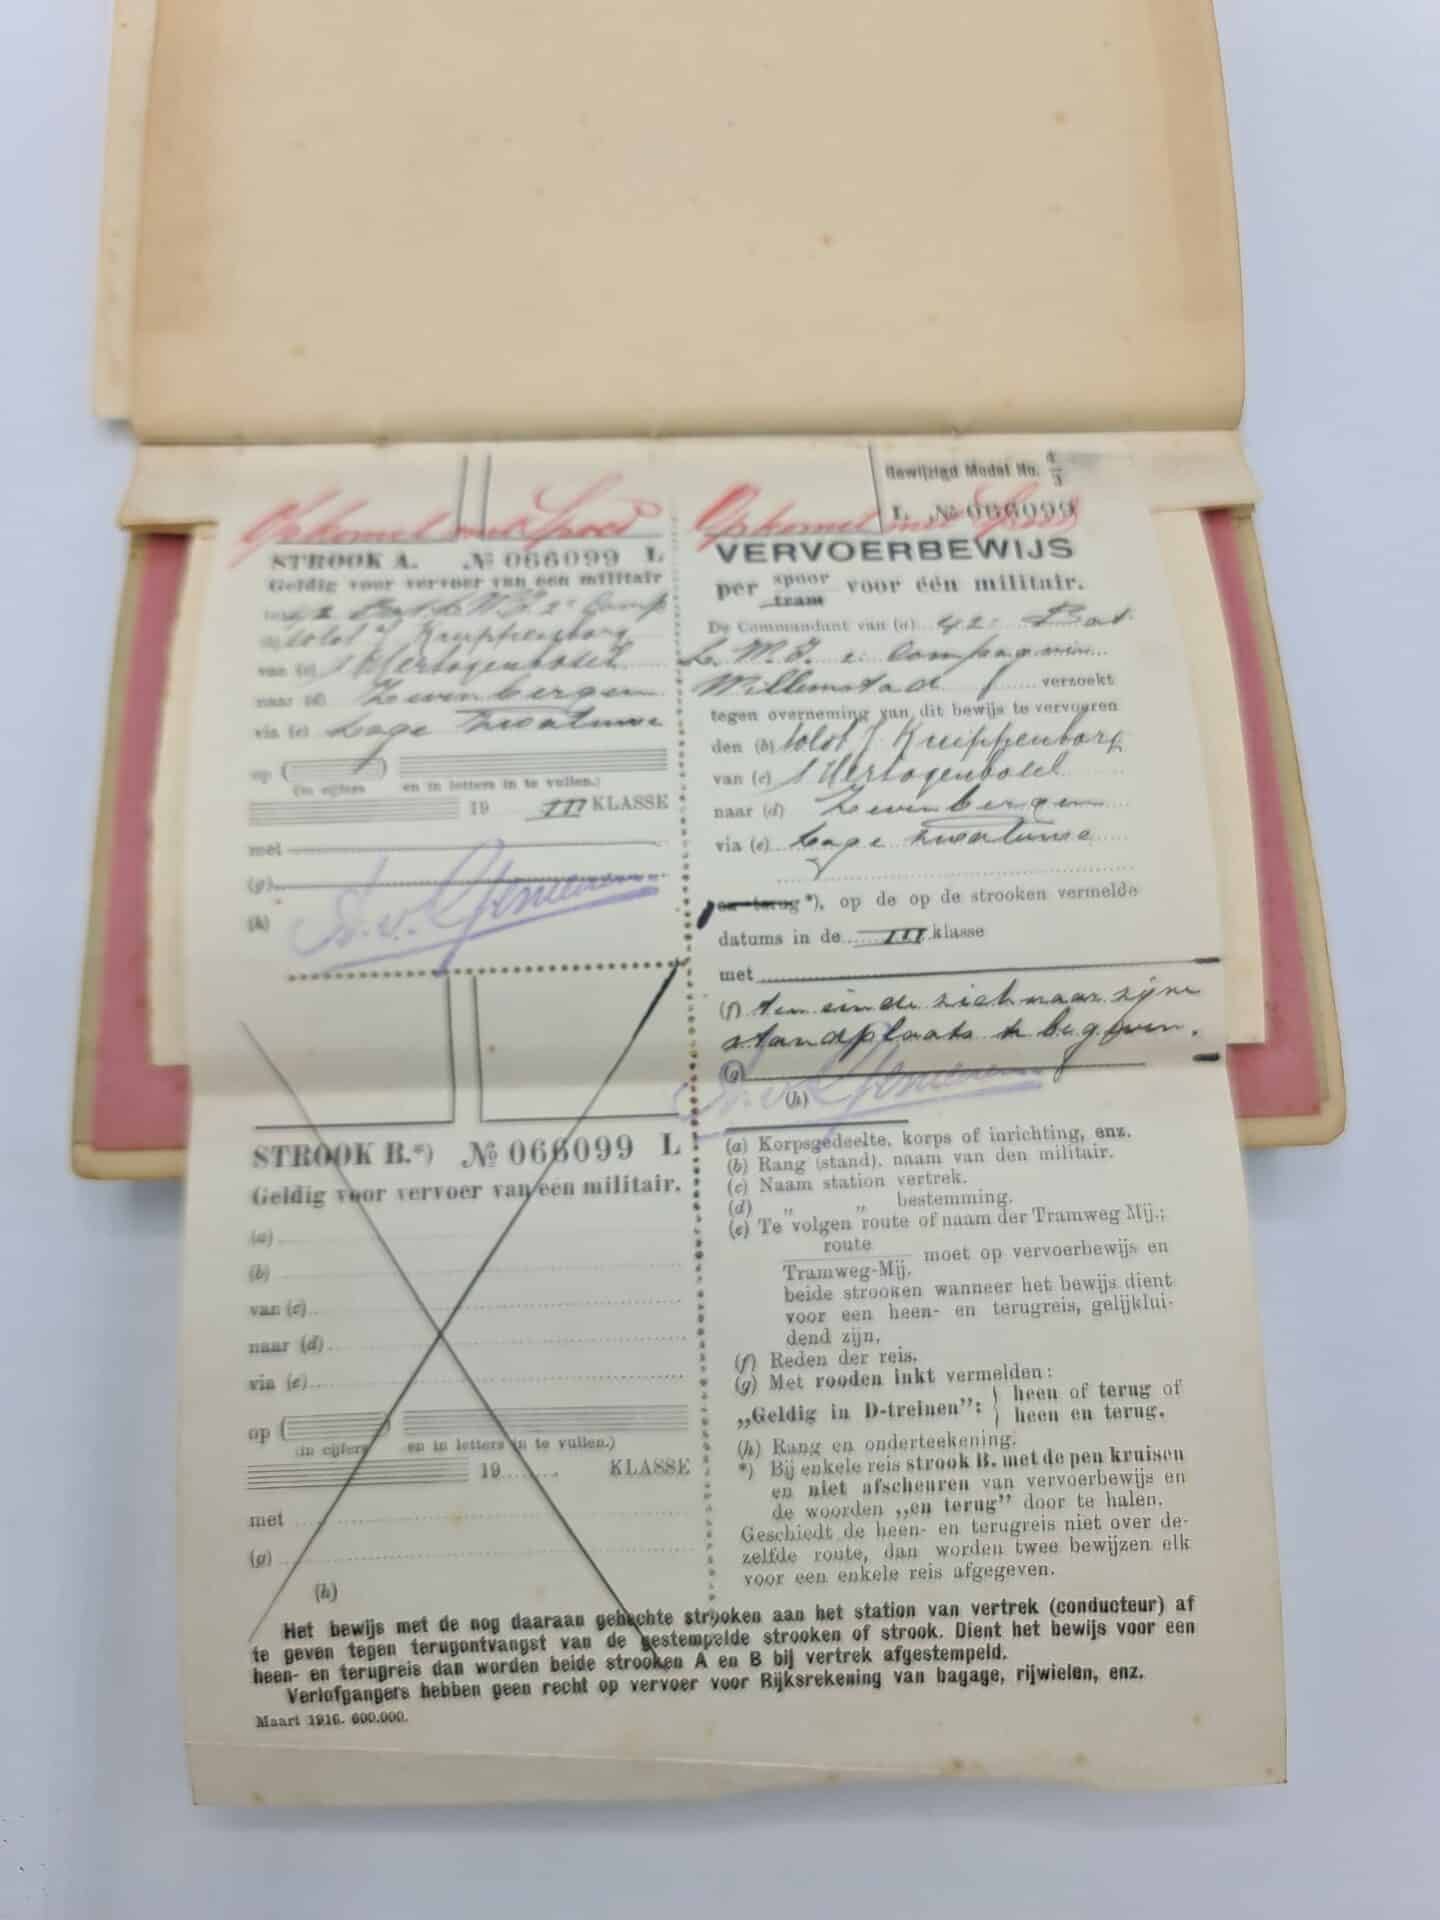 Opkomst met Spoed
STROOK A. № 066099 L
Geldig voor vervoer van één militair
42 Bat L.W.I. 2e Comp
soldt J Kruippenborg
van (c) 's Hertogenbosch
naar (d) Zevenbergen
via (e) Lage Zwaluwe
op ( )
(in cijfers en in letters in te vullen.)
19 III KLASSE
met
(g)
(h)
STROOK B.*) № 066099 L
Geldig voor vervoer van één militair.
(a)
(b)
van (c)
naar (d)
via (e)
op ( )
(in cijfers en in letters in te vullen.)
19 KLASSE
met
(g)
(h)
Gewijzigd Model No. 4/3
Opkomst met Spoed
L № 066099
VERVOERBEWIJS
per spoor/tram voor één militair.
De Commandant van (a) 42e Bat.
L.W.I. 2e Compagnie
Willemstad verzoekt
tegen overneming van dit bewijs te vervoeren
den (b) soldt J Kruippenborg
van (c) 's Hertogenbosch
naar (d) Zevenbergen
via (e) Lage Zwaluwe
en terug *), op de op de strooken vermelde
datums in de III klasse
met
(f) ten einde zich naar zijne
standplaats te begeven.
(g)
(h)
(a) Korpsgedeelte, korps of inrichting, enz.
(b) Rang (stand), naam van den militair.
(c) Naam station vertrek.
(d) „ „ bestemming.
(e) Te volgen route of naam der Tramweg Mij.;
route
Tramweg-Mij. moet op vervoerbewijs en
beide strooken wanneer het bewijs dient
voor een heen- en terugreis, gelijklui-
dend zijn.
(f) Reden der reis.
(g) Met rooden inkt vermelden:
„Geldig in D-treinen”: } heen of terug of
heen en terug.
(h) Rang en onderteekening.
*) Bij enkele reis strook B. met de pen kruisen
en niet afscheuren van vervoerbewijs en
de woorden „en terug” door te halen.
Geschiedt de heen- en terugreis niet over de-
zelfde route, dan worden twee bewijzen elk
voor een enkele reis afgegeven.
Het bewijs met de nog daaraan gehechte strooken aan het station van vertrek (conducteur) af
te geven tegen terugontvangst van de gestempelde strooken of strook. Dient het bewijs voor een
heen- en terugreis dan worden beide strooken A en B bij vertrek afgestempeld.
Verlofgangers hebben geen recht op vervoer voor Rijksrekening van bagage, rijwielen, enz.
Maart 1916. 600.000.